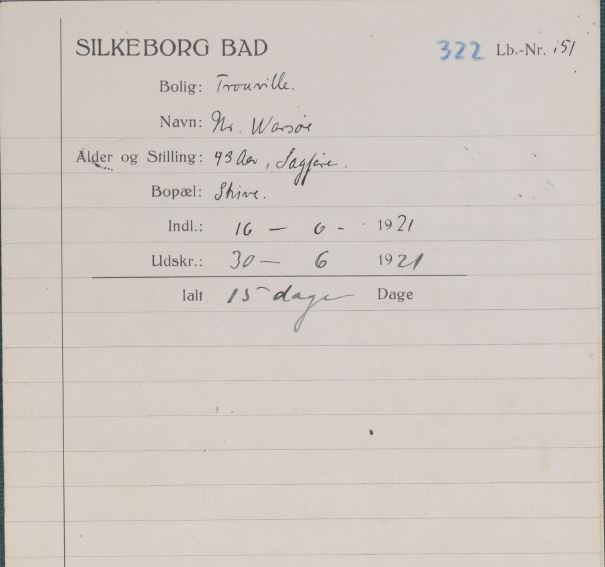 SILKEBORG BAD 322 Lb.-Nr. 151
Bolig: Trouville.
Navn: Hr. Warsøe
Alder og Stilling: 43 Aar, Sagføre.
Bopæl: Skive.
Indl.: 16 — 6 - 1921
Udskr.: 30 — 6 1921
Ialt 15 dage Dage